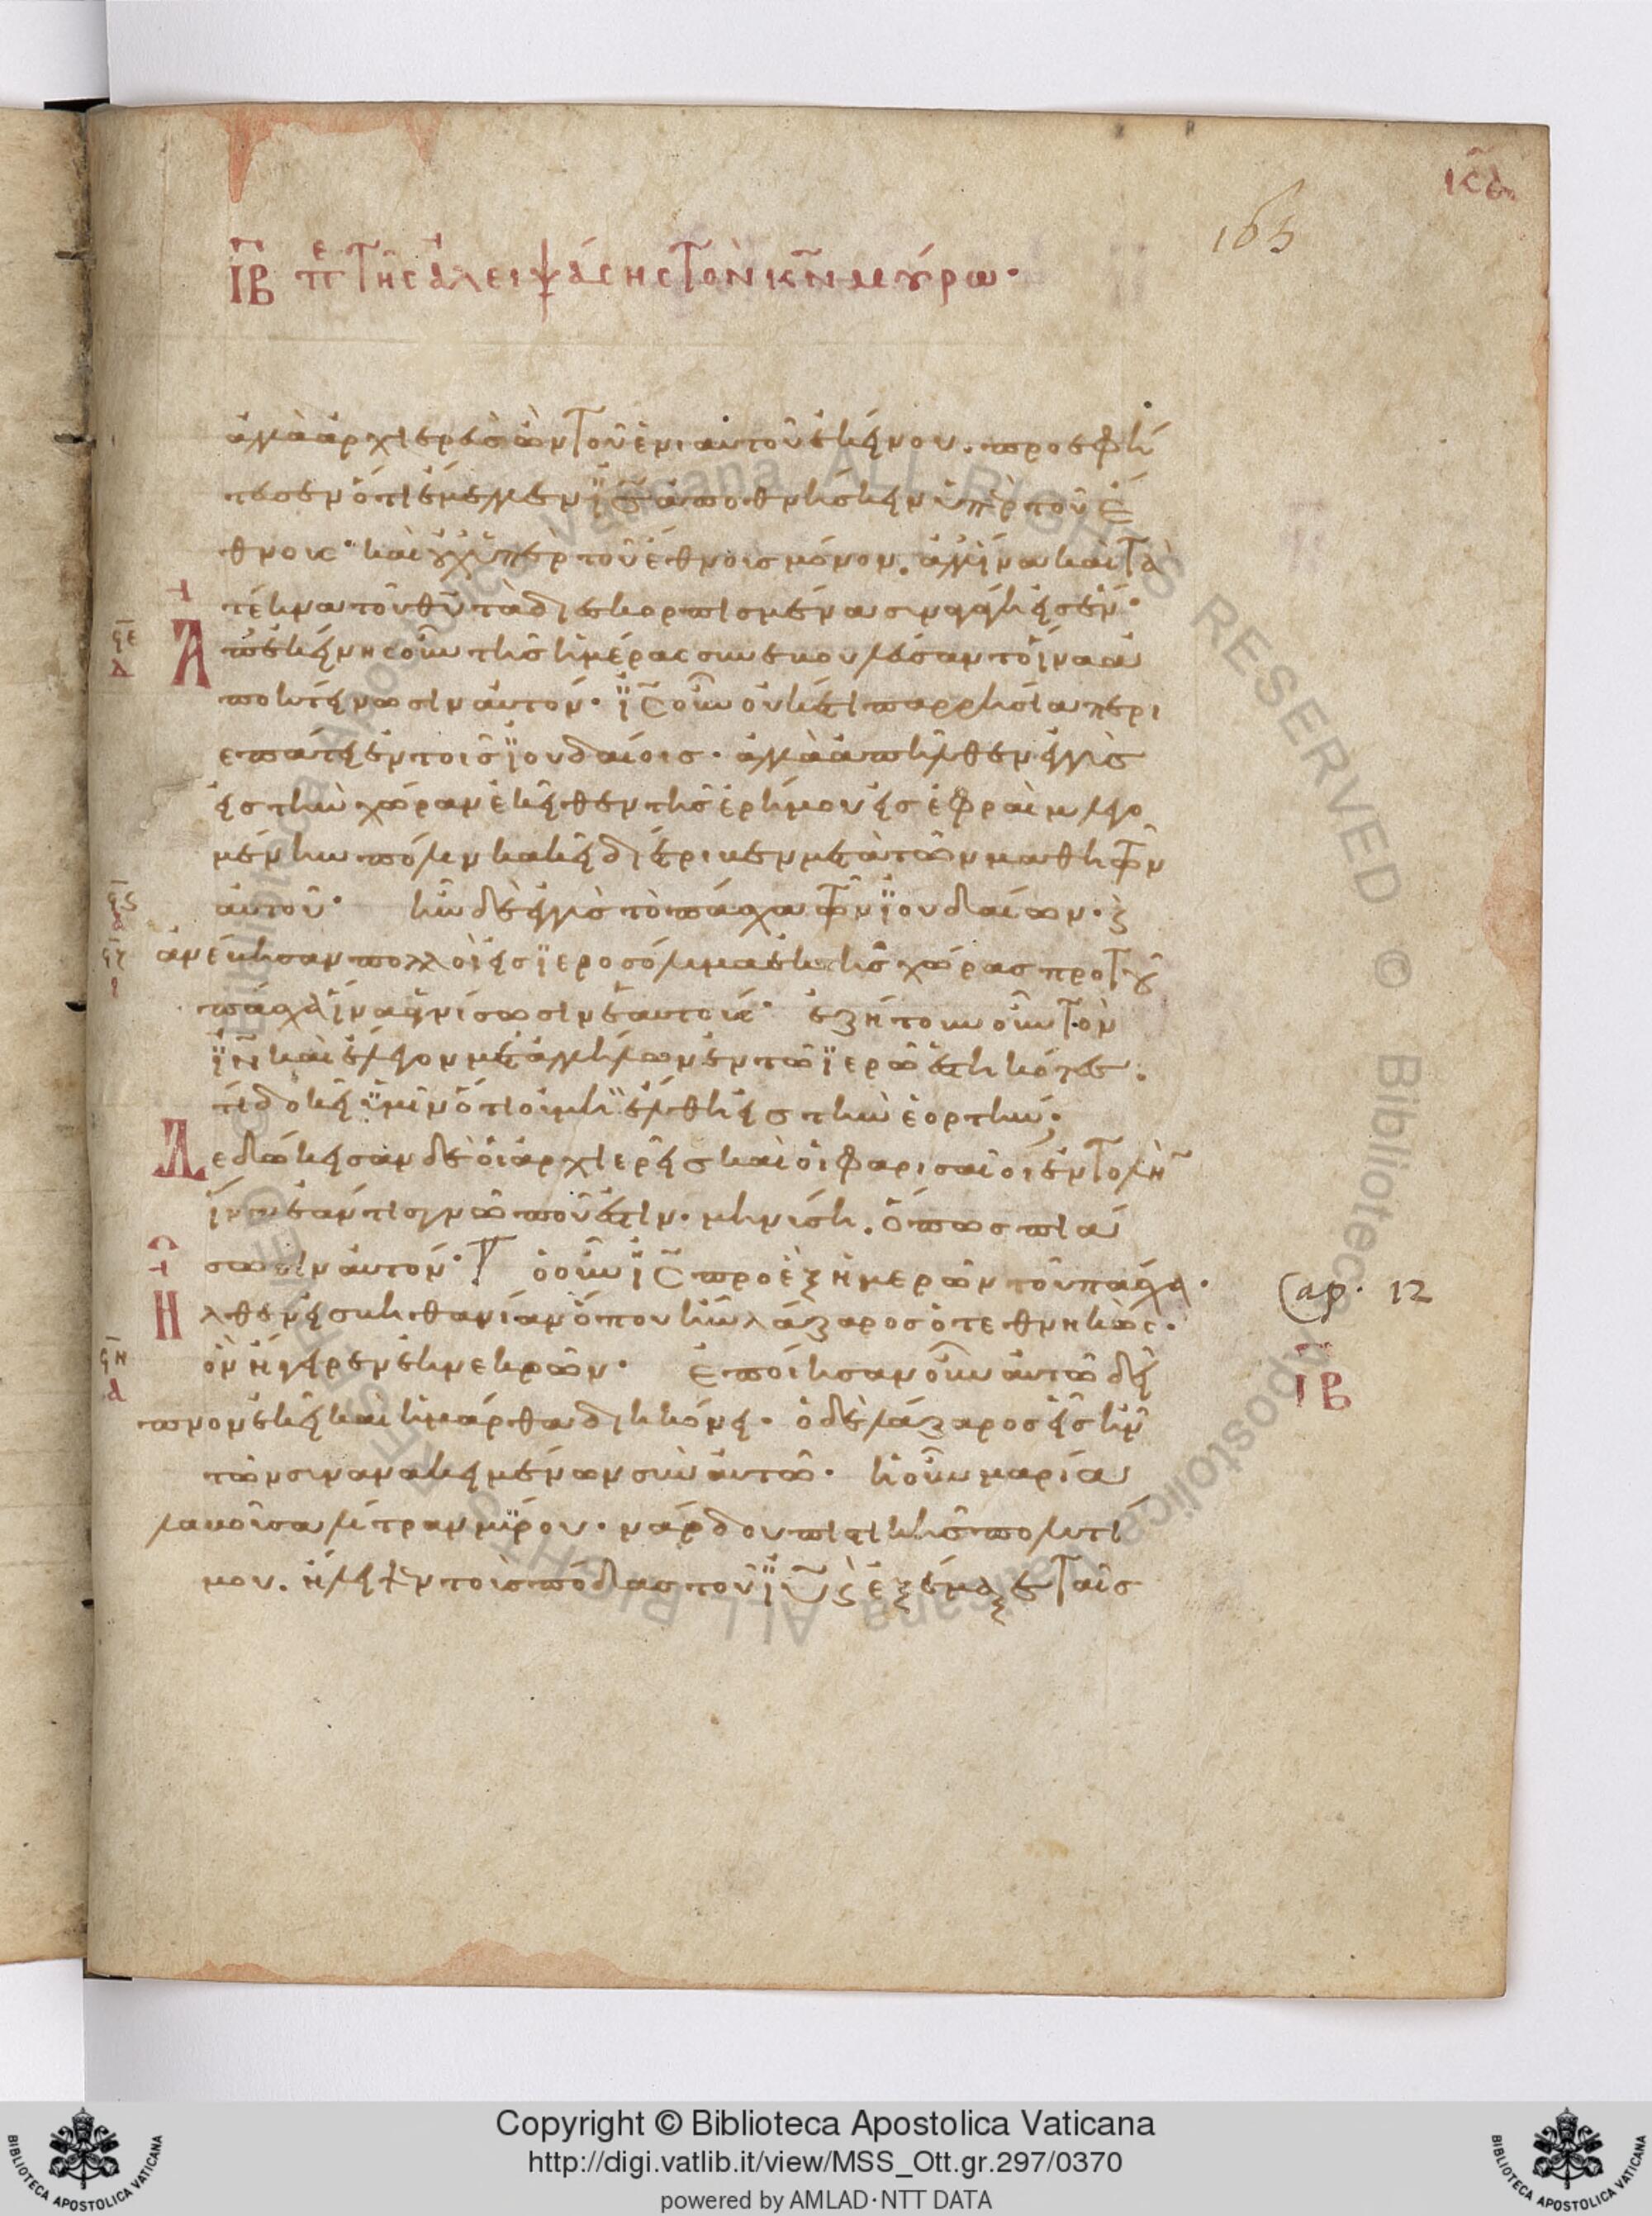 ιϛδ
163
ΙΒ πε τῆς ἀλειψάσης τὸν κν μύρω·
ἀλλὰ ἀρχιερεὺς ὢν τοῦ ἐνιαυτοῦ ἐκείνου. προεφή
τευσεν ὅτι ἔμελλεν ϊς ἀποθνήσκειν ὑπὲρ τοῦ ἔ
θνους· καὶ οὐχ ὑπὲρ τοῦ ἔθνους μόνον. ἀλλ' ἵνα καὶ τὰ
τέκνα τοῦ θυ τὰ διεσκορπισμένα συναγάγη εἰς ἕν·
ϟε
δ
Ἀπ' ἐκείνης οὖν τῆς ἡμέρας συνεβουλεύσαντο ἵνα ἀ
ποκτείνωσιν αὐτόν· ϊς οὖν οὐκέτι παρρησία περι
επάτει ἐν τοῖς ϊουδαίοις· ἀλλὰ ἀπῆλθεν ἐγγὺς
εἰς τὴν χώραν ἐκεῖθεν τῆς ἐρήμου εἰς ἐφραὶμ λεγο
μένην πόλιν κακεῖ διέτριβεν μετὰ τῶν μαθητῶν
ϟϛ
αὐτοῦ· ἦν δὲ ἐγγὺς τὸ πάσχα τῶν ϊουδαίων· ϗ
ϟζ
ι
ἀνέβησαν πολλοὶ εἰς ϊεροσόλυμα ἐκ τῆς χώρας προ τοῦ
πάσχα ἵνα ἁγνίσωσιν ἑαυτούς· ἐζήτουν οὖν τὸν
ϊν καὶ ἔλεγον μετ' ἀλλήλων ἐν τῶ ϊερῶ ἑστηκότες.
τί δοκεῖ ϋμῖν ὅτι οὐ μὴ ἔλθη εἰς τὴν ἑορτήν;
Δεδώκεισαν δὲ οἱ ἀρχιερεῖς καὶ οἱ φαρισαῖοι ἐντολὴν
ἵνα ἐάν τις γνῶ ποῦ ἐστιν. μηνύση. ὅπως πιά
σωσιν αὐτόν· ὁ οὖν ϊς προ ἓξ ἡμερῶν τοῦ πάσχα·
Cap. 12
Ἦλθεν εἰς βηθανίαν ὅπου ἦν λάζαρος ὁ τεθνηκώς·
ϟη
δ
ὃν ἤγειρεν ἐκ νεκρῶν· Ἐποίησαν οὖν αὐτῶ δεῖ
ΙΒ
πνον ἐκεῖ καὶ ἡ μάρθα διηκόνει· ὁ δὲ λάζαρος εἷς ἦν
τῶν συνανακειμένων σὺν αὐτῶ· ἡ οὖν μαρία
λαβοῦσα λίτραν μύρου· νάρδου πιστικῆς πολυτί
μου. ἤλειψεν τοὺς πόδας τοῦ ϊυ ϗ ἐξέμαξε ταῖς
Copyright © Biblioteca Apostolica Vaticana
http://digi.vatlib.it/view/MSS_Ott.gr.297/0370
powered by AMLAD·NTT DATA
BIBLIOTECA APOSTOLICA VATICANA
BIBLIOTECA APOSTOLICA VATICANA